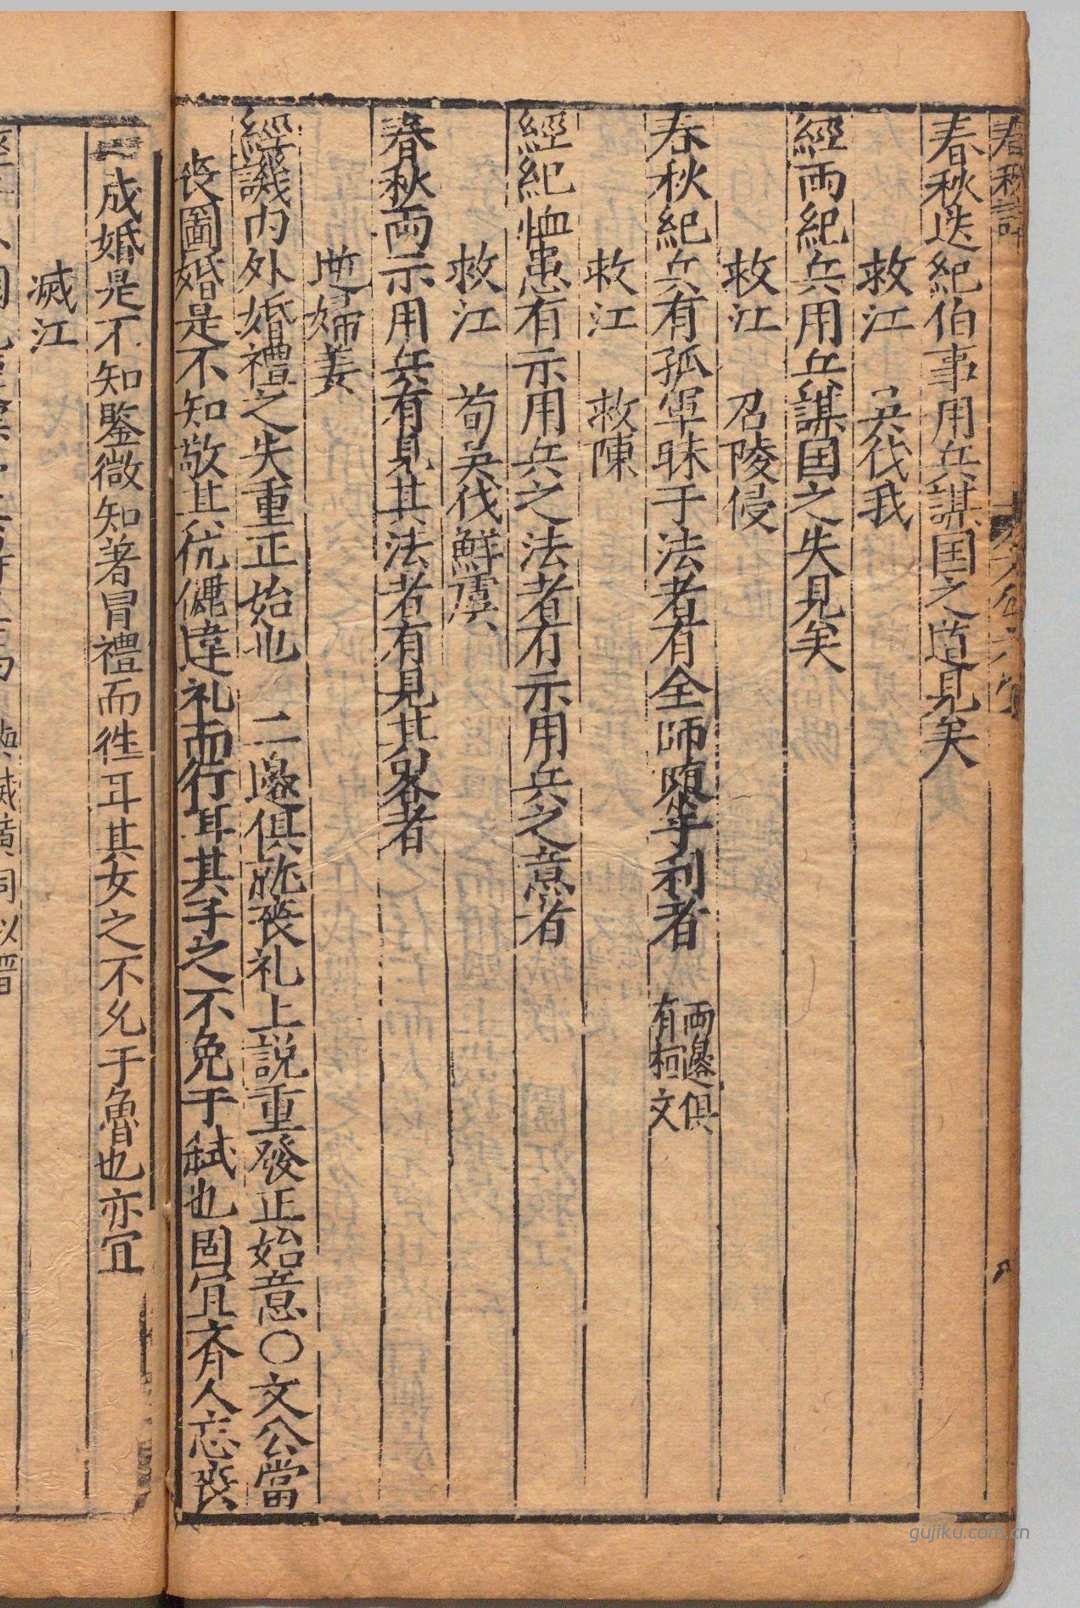 春秋迭紀伯事用兵謀国之道見矣
救江　吳伐我
經両紀兵用兵謀国之失見矣
救江　召陵侵
春秋紀兵有孤軍昧于法者有全師隳乎利者　両邊俱有桓文
救江　救陳
經紀恤患有示用兵之法者有示用兵之意者
救江　荀吳伐鮮虞
春秋両示用兵有見其法者有見其畧者
逆婦姜
經譏内外婚禮之失重正始也　二邊俱就喪礼上説重發正始意○文公當
喪圖婚是不知敬其伉儷違礼而行耳其子之不免于弑也固宜齊人忘喪
成婚是不知鑒微知著冒禮而徃耳其女之不允于魯也亦宜
滅江
gujiku.com.cn